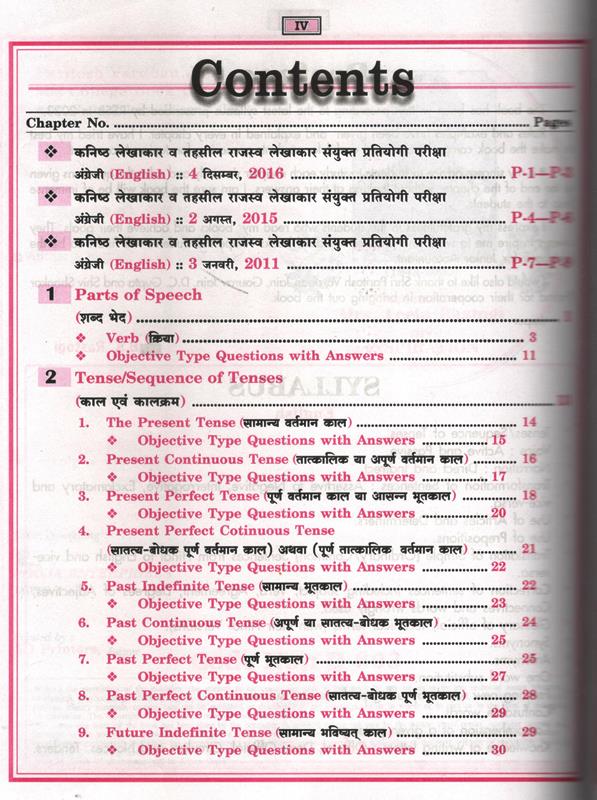 IV
Contents
Chapter No. ........ Pages
❖ कनिष्ठ लेखाकार व तहसील राजस्व लेखाकार संयुक्त प्रतियोगी परीक्षा
अंग्रेजी (English) :: 4 दिसम्बर, 2016 ........ P-1—P-3
❖ कनिष्ठ लेखाकार व तहसील राजस्व लेखाकार संयुक्त प्रतियोगी परीक्षा
अंग्रेजी (English) :: 2 अगस्त, 2015 ........ P-4—P-6
❖ कनिष्ठ लेखाकार व तहसील राजस्व लेखाकार संयुक्त प्रतियोगी परीक्षा
अंग्रेजी (English) :: 3 जनवरी, 2011 ........ P-7—P-8
1 Parts of Speech
(शब्द भेद) ........
❖ Verb (क्रिया) ........ 3
❖ Objective Type Questions with Answers ........ 11
2 Tense/Sequence of Tenses
(काल एवं कालक्रम) ........
1. The Present Tense (सामान्य वर्तमान काल) ........ 14
❖ Objective Type Questions with Answers ........ 15
2. Present Continuous Tense (तात्कालिक या अपूर्ण वर्तमान काल) ........ 16
❖ Objective Type Questions with Answers ........ 17
3. Present Perfect Tense (पूर्ण वर्तमान काल या आसन्न भूतकाल) ........ 18
❖ Objective Type Questions with Answers ........ 20
4. Present Perfect Cotinuous Tense
(सातत्य-बोधक पूर्ण वर्तमान काल) अथवा (पूर्ण तात्कालिक वर्तमान काल) ........ 21
❖ Objective Type Questions with Answers ........ 22
5. Past Indefinite Tense (सामान्य भूतकाल) ........ 22
❖ Objective Type Questions with Answers ........ 23
6. Past Continuous Tense (अपूर्ण या सातत्य-बोधक भूतकाल) ........ 24
❖ Objective Type Questions with Answers ........ 25
7. Past Perfect Tense (पूर्ण भूतकाल) ........ 25
❖ Objective Type Questions with Answers ........ 27
8. Past Perfect Continuous Tense (सातत्य-बोधक पूर्ण भूतकाल) ........ 28
❖ Objective Type Questions with Answers ........ 29
9. Future Indefinite Tense (सामान्य भविष्यत् काल) ........ 29
❖ Objective Type Questions with Answers ........ 30